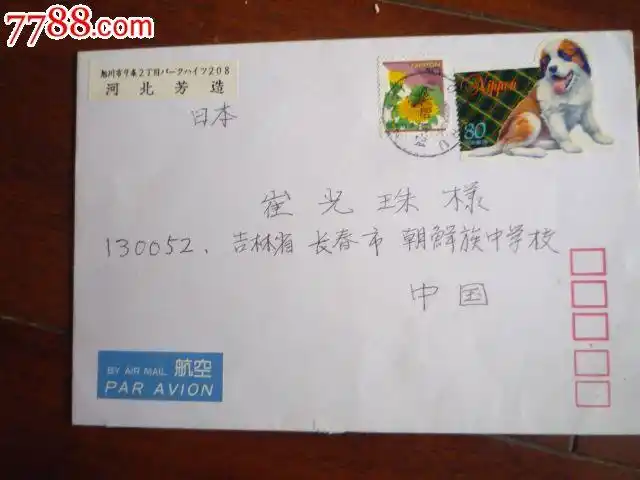 7788.com
旭川市9条2丁目パークハイツ208
河北芳造
日本
NIPPON
Nippon
80
崔光珠様
130052、吉林省長春市朝鮮族中学校
中国
BY AIR MAIL 航空
PAR AVION